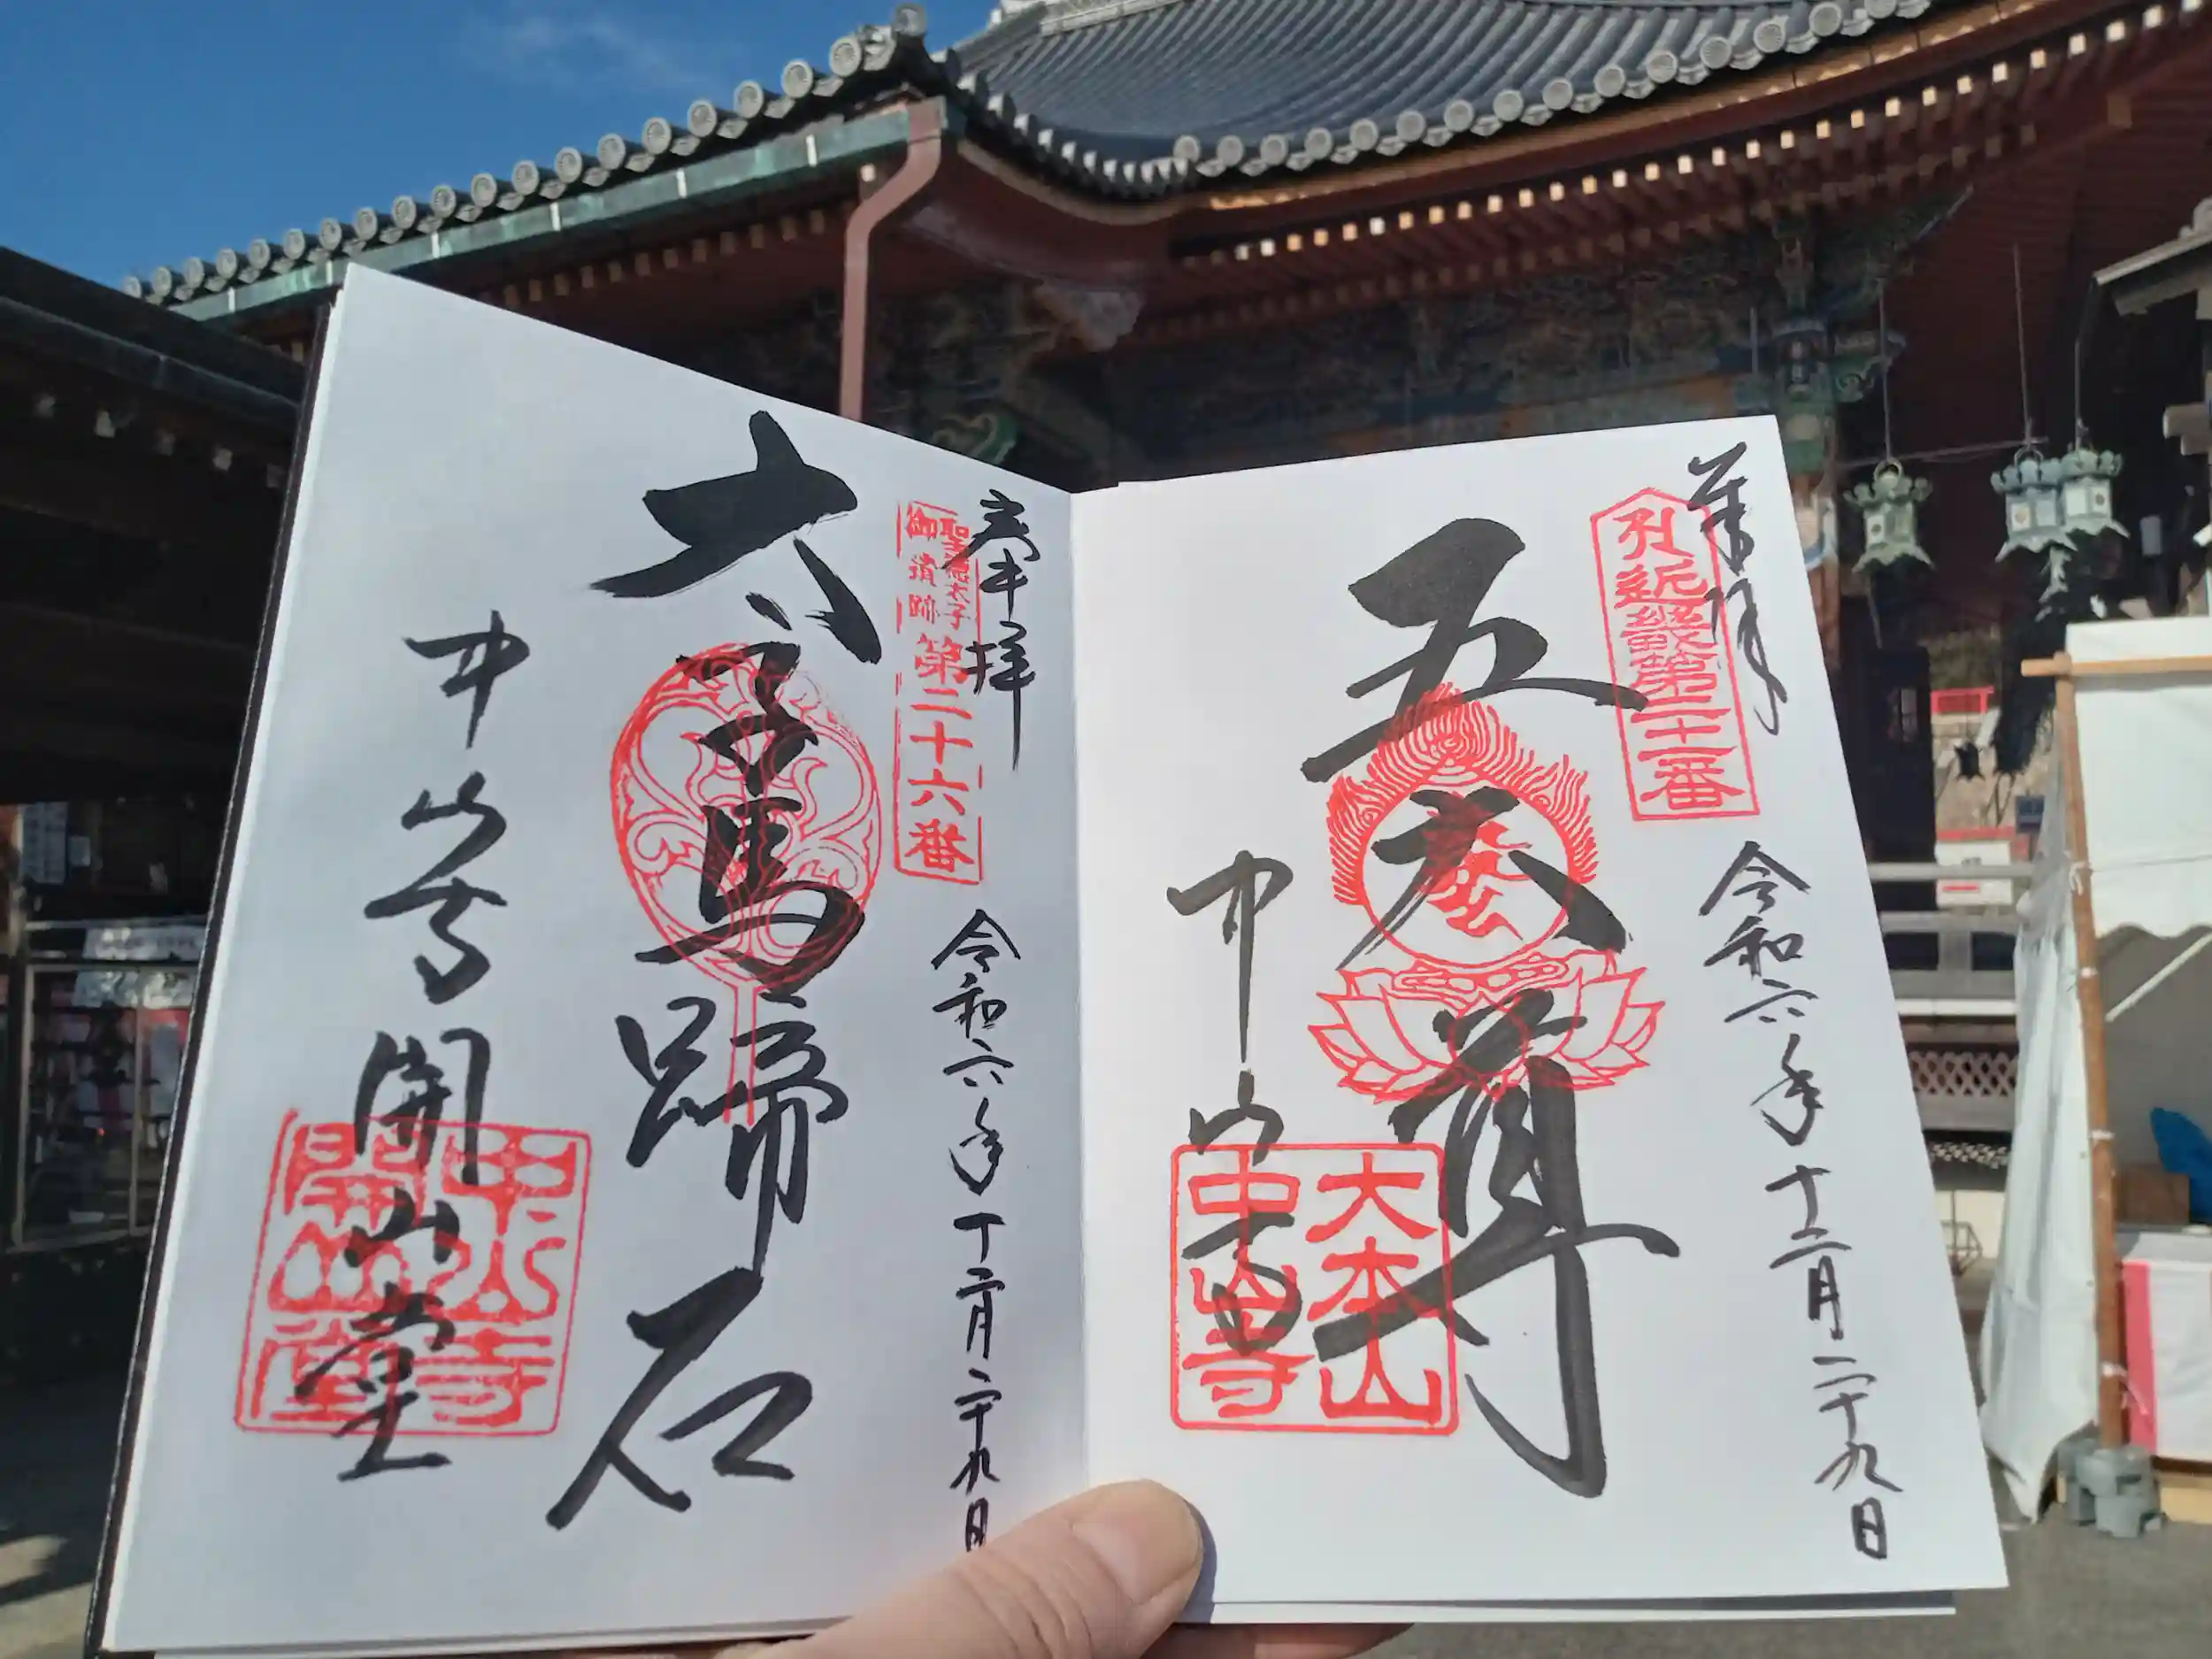 奉拝
近畿第二十一番
令和六年十二月二十九日
五大尊
中山寺
大本山
中山寺
奉拝
聖徳太子
御遺跡
第二十六番
令和六年十二月二十九日
太子馬蹄石
中山寺開山堂
中山寺
開山堂